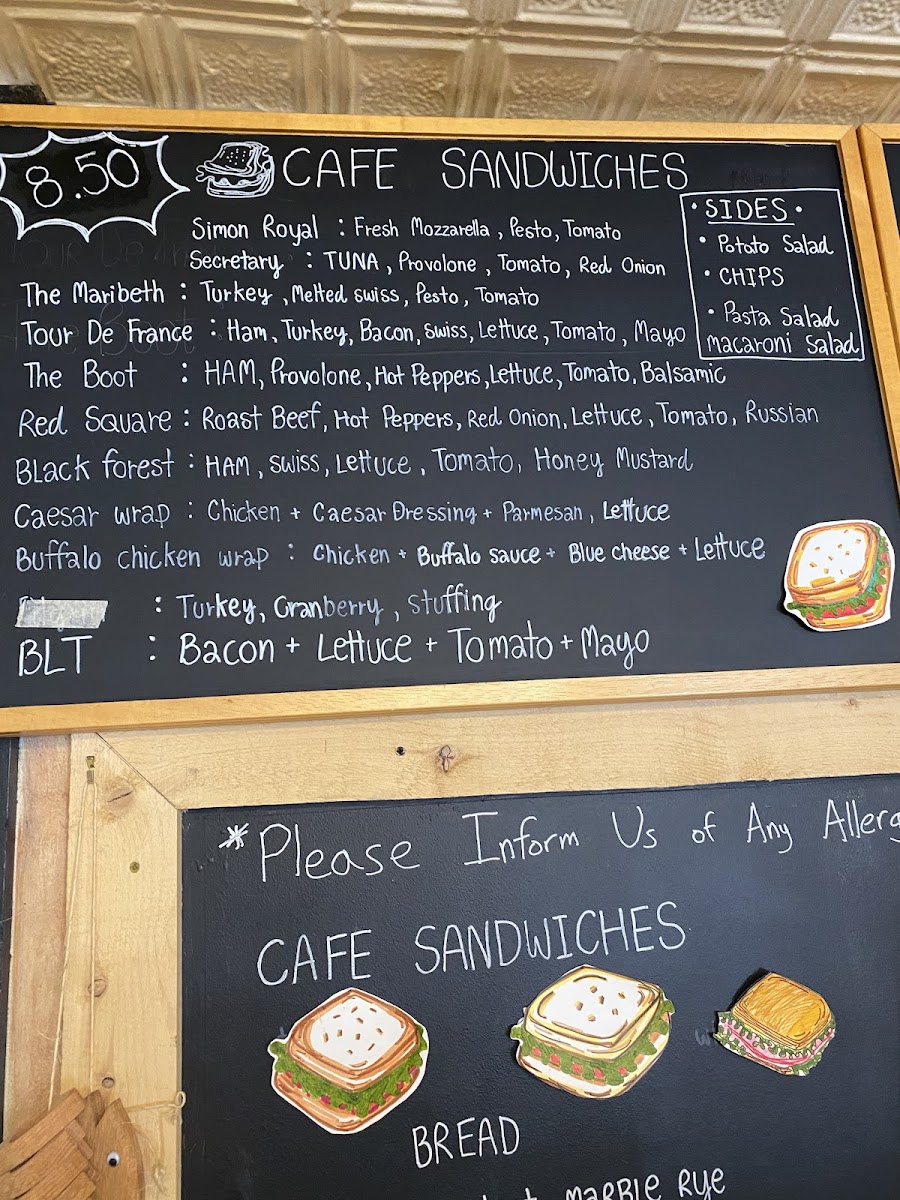 8.50
CAFE SANDWICHES
Simon Royal : Fresh Mozzarella, Pesto, Tomato
Secretary : TUNA, Provolone, Tomato, Red Onion
The Maribeth : Turkey, Melted swiss, Pesto, Tomato
Tour De France : Ham, Turkey, Bacon, Swiss, Lettuce, Tomato, Mayo
The Boot : HAM, Provolone, Hot Peppers, Lettuce, Tomato, Balsamic
Red Square : Roast Beef, Hot Peppers, Red Onion, Lettuce, Tomato, Russian
Black forest : HAM, swiss, Lettuce, Tomato, Honey Mustard
Caesar wrap : Chicken + Caesar Dressing + Parmesan, Lettuce
Buffalo chicken wrap : Chicken + Buffalo sauce + Blue cheese + Lettuce
: Turkey, Cranberry, Stuffing
BLT : Bacon + Lettuce + Tomato + Mayo
• SIDES •
• Pototo Salad
• CHIPS
• Pasta Salad
macaroni Salad
*Please Inform Us of Any Allerg
CAFE SANDWICHES
BREAD
MARBLE RYE